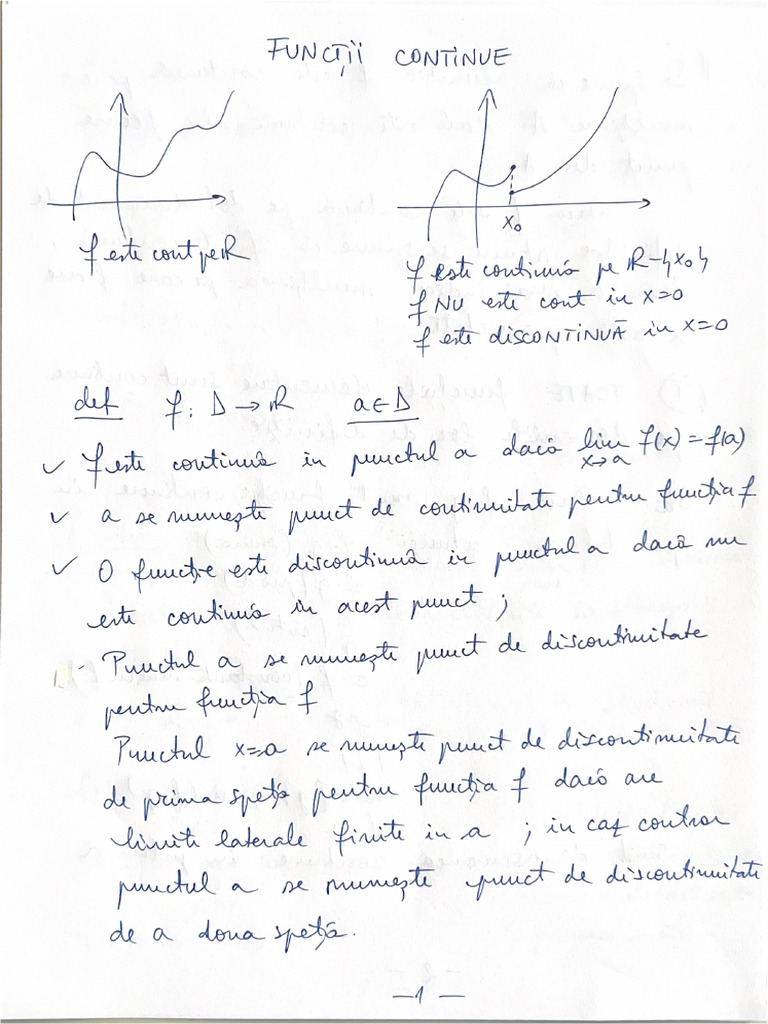 FUNCȚII CONTINUE
x₀
f este cont pe ℝ
f este continuă pe ℝ-{x₀}
f NU este cont in x=0
f este DISCONTINUĂ in x=0
def f: D → ℝ a ∈ D
✓ f este continuă in punctul a dacă lim f(x) = f(a)
x→a
✓ a se numește punct de continuitate pentru funcția f
✓ O funcție este discontinuă in punctul a dacă nu
este continuă in acest punct ;
- Punctul a se numește punct de discontinuitate
pentru funcția f
Punctul x=a se numește punct de discontinuitate
de prima speță pentru funcția f dacă are
limite laterale finite in a ; in caz contrar
punctul a se numește punct de discontinuitate
de a doua speță.
-1-